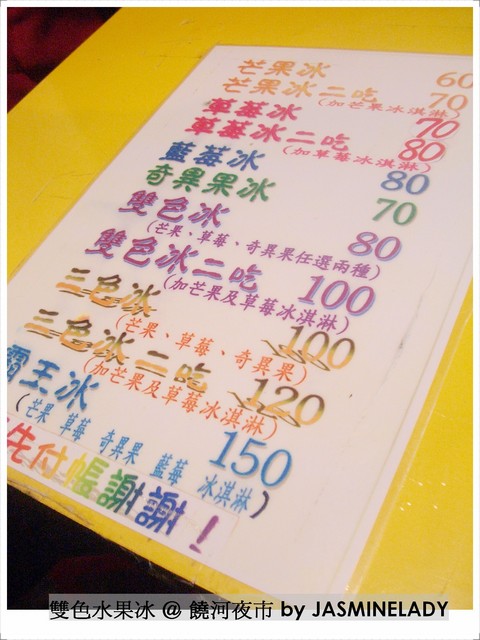 芒果冰 60
芒果冰二吃 70
(加芒果冰淇淋)
草莓冰 70
草莓冰二吃 80
(加草莓冰淇淋)
藍莓冰 80
奇異果冰 70
雙色冰 80
(芒果、草莓、奇異果任選兩種)
雙色冰二吃 100
(加芒果及草莓冰淇淋)
三色冰 100
(芒果、草莓、奇異果)
三色冰二吃 120
(加芒果及草莓冰淇淋)
霸王冰 150
(芒果 草莓 奇異果 藍莓 冰淇淋)
先付帳謝謝!
雙色水果冰 @ 饒河夜市 by JASMINELADY